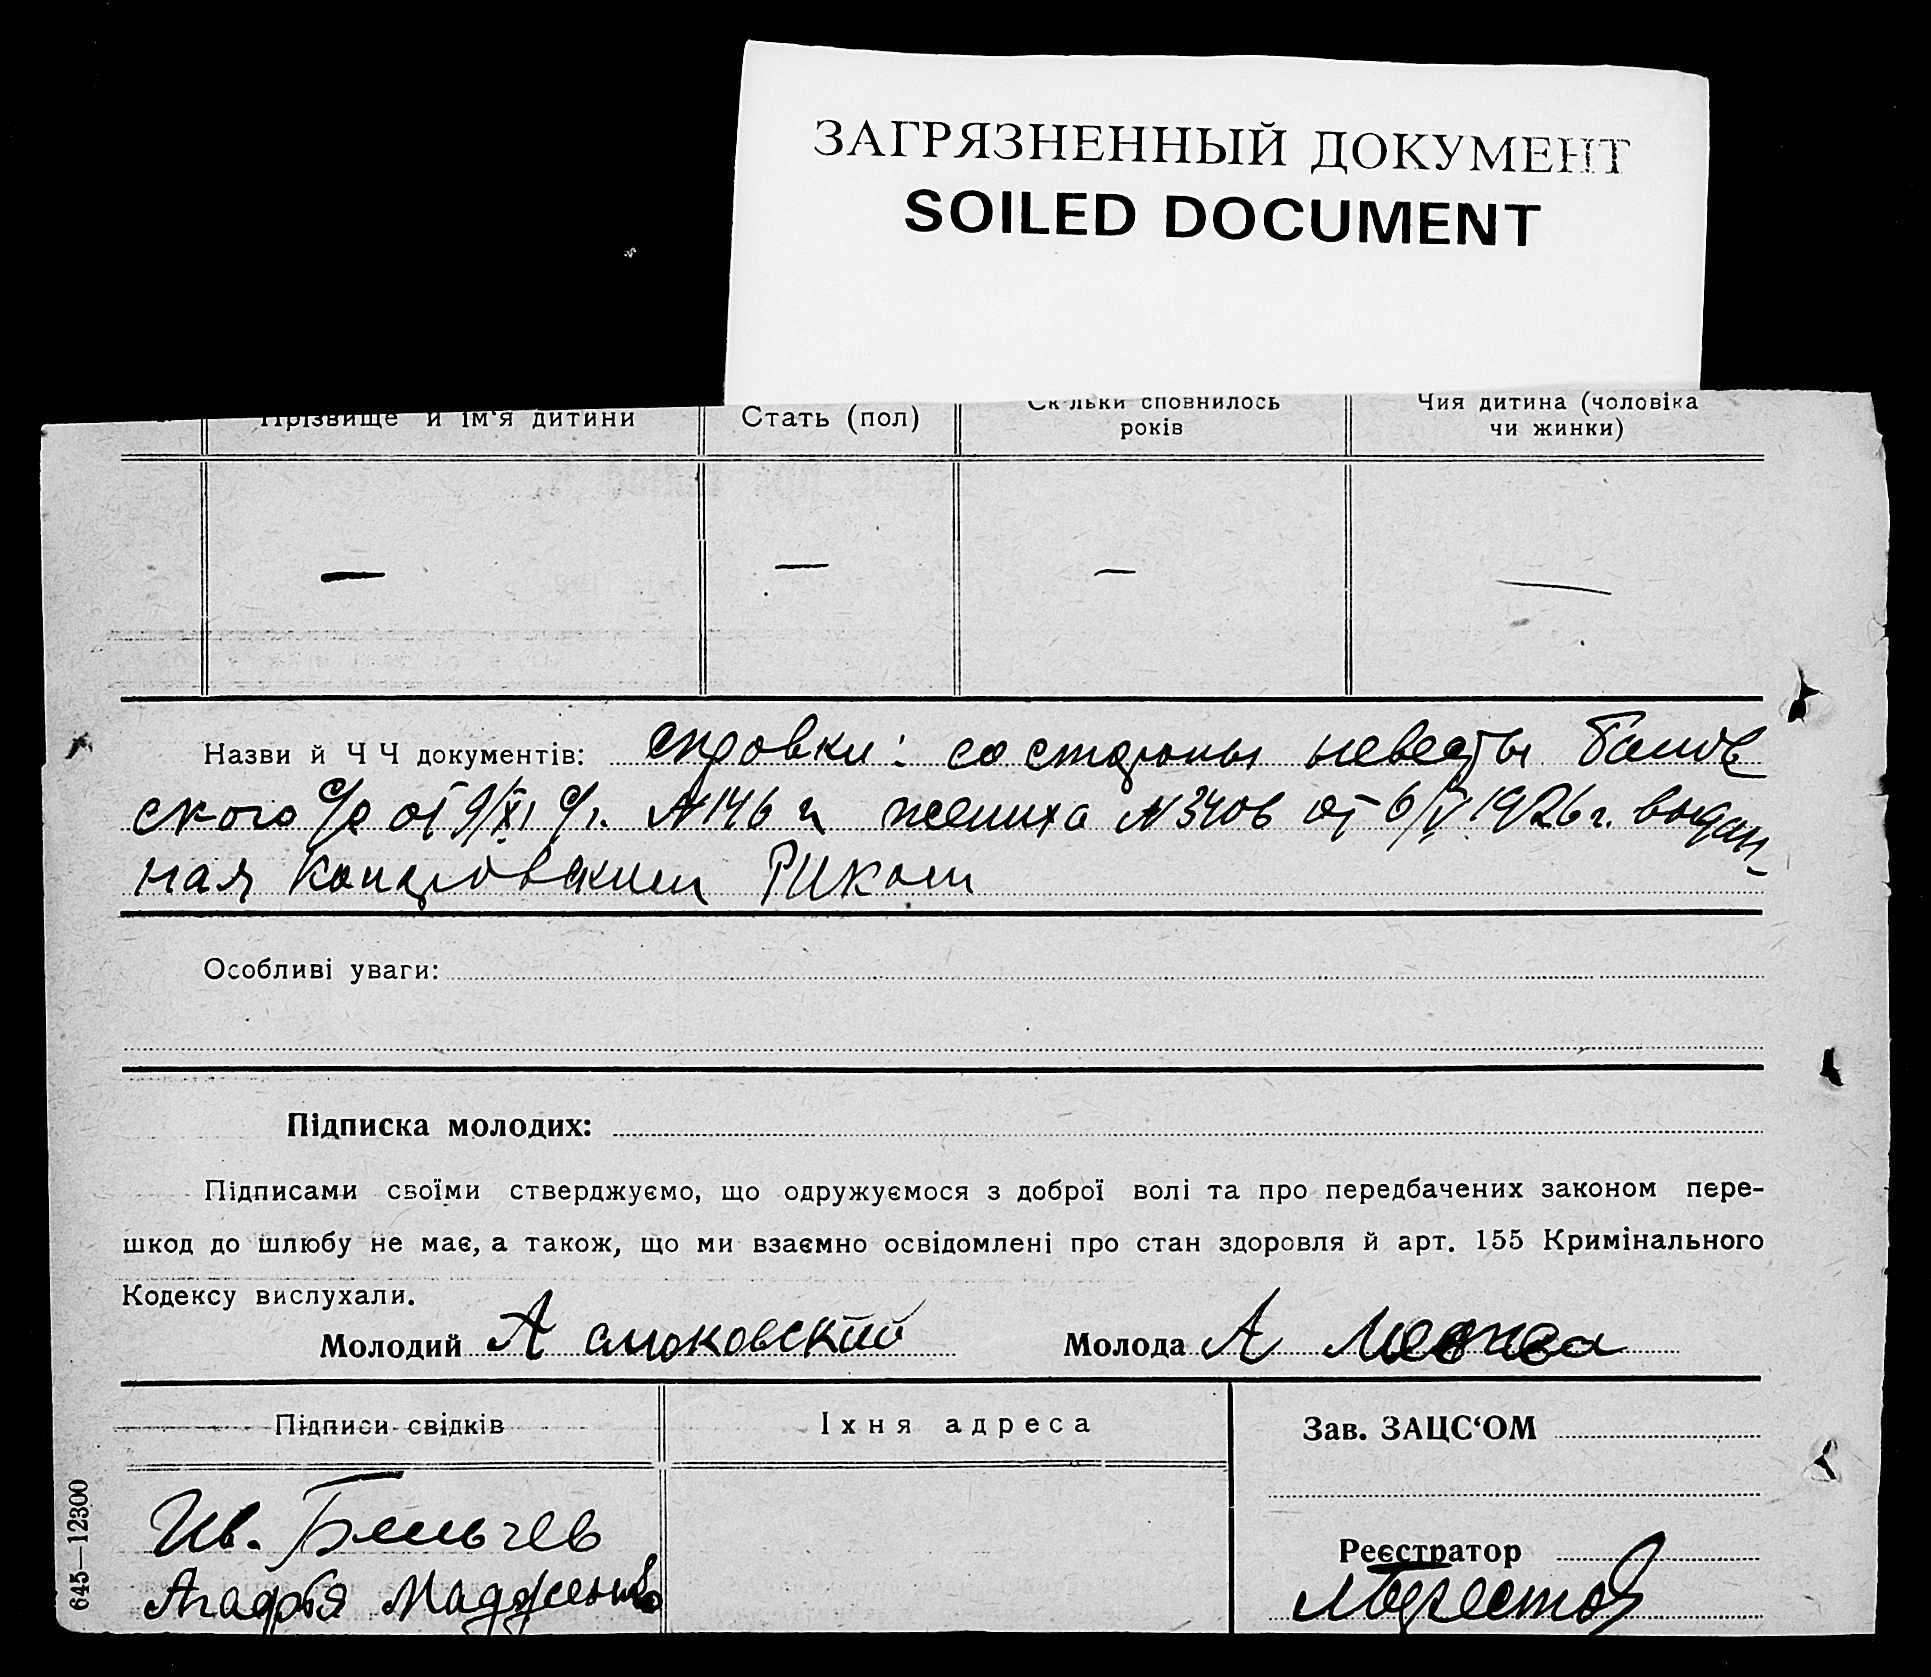 ЗАГРЯЗНЕННЫЙ ДОКУМЕНТ
SOILED DOCUMENT
Прізвище й ім'я дитини
Стать (пол)
Скільки сповнилось
років
Чия дитина (чоловіка
чи жинки)
Назви й Ч Ч документів: справки: со стороны невесты
ского с/с от 9/XI с/г. №146 и жениха №3406 от 6/V 1926 г. выдан-
ная РИКом
Особливі уваги:
Підписка молодих:
Підписами своїми стверджуємо, що одружуємося з доброї волі та про передбачених законом пере-
шкод до шлюбу не має, а також, що ми взаємно освідомлені про стан здоровля й арт. 155 Кримінального
Кодексу вислухали.
Молодий А Смоковский Молода А
Підписи свідків
Іхня адреса
Зав. ЗАЦС‘ОМ
Ив.
Агафья
Реєстратор
645—12300